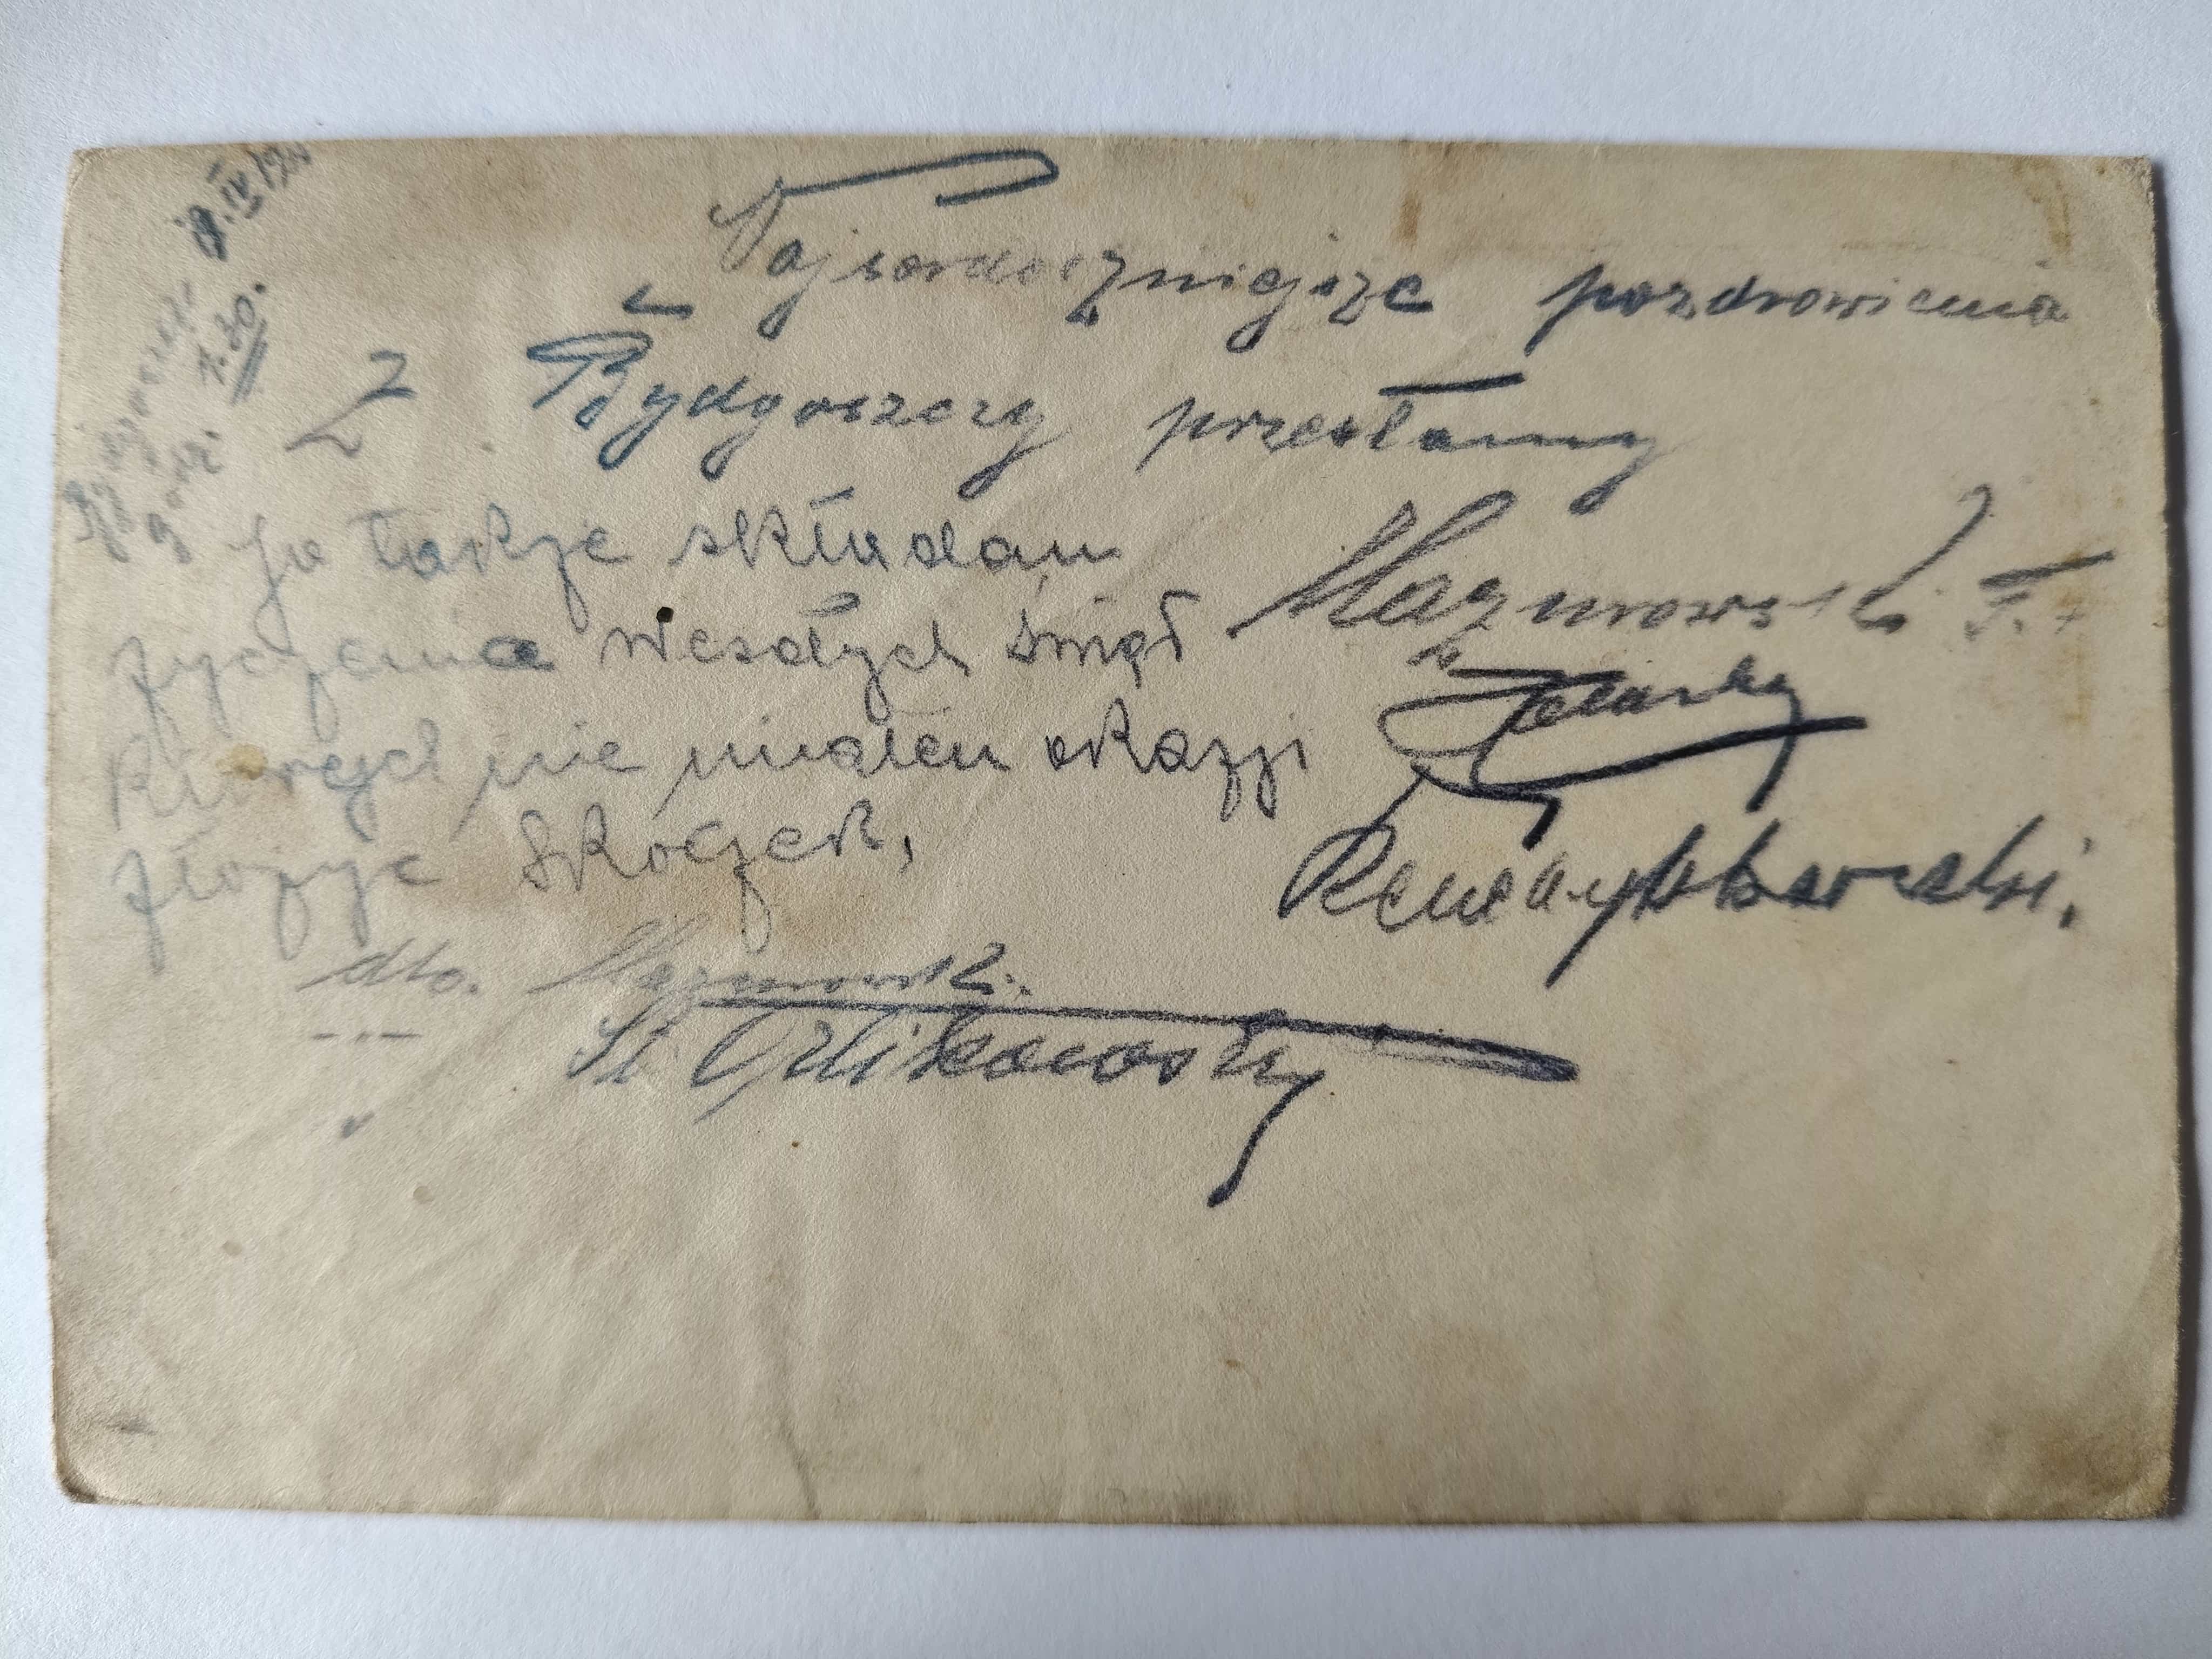 Bydgoszcz
godz. 7.30.
Najserdeczniejsze pozdrowienia
z Bydgoszczy przesłamy
Ja także składam
życzenia wesołych świąt
których nie miałem okazji
złożyć Skoczek,
Mazurowski F.
dla. Mazurowski.
St Orlikowski